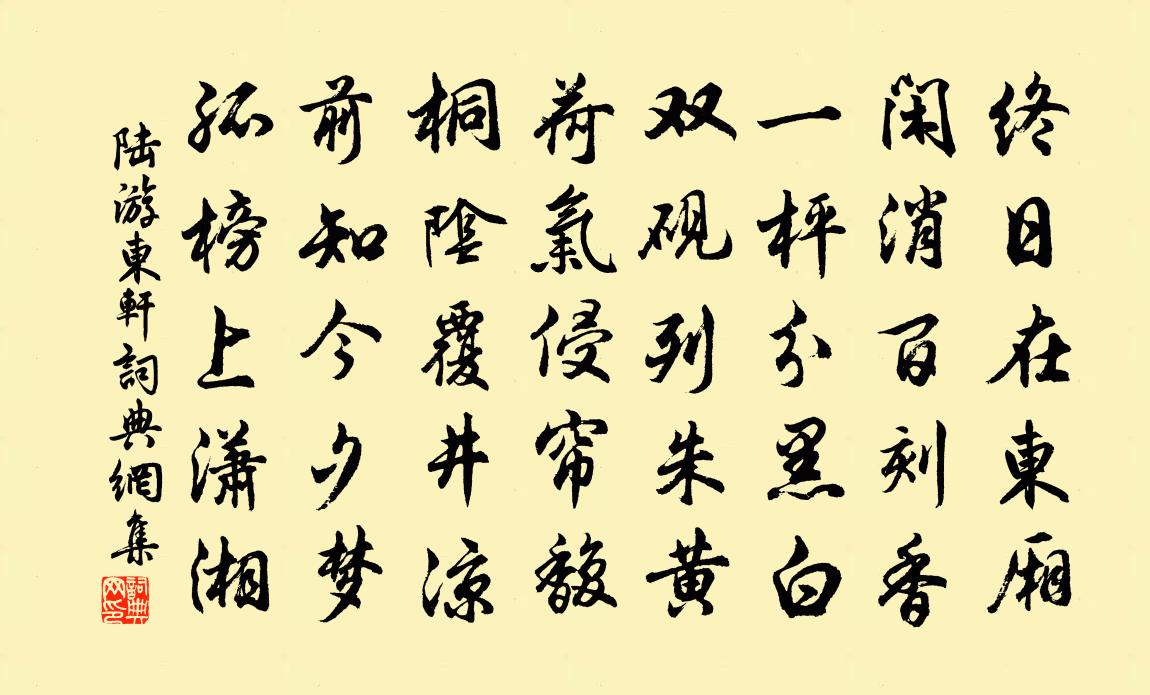 终日在東厢
闲消百刻香
一枰分黑白
双砚列朱黄
荷氣侵帘馥
桐陰覆井凉
前知今夕梦
孤榜上潇湘
陆游東軒詞典網集
詞典网印